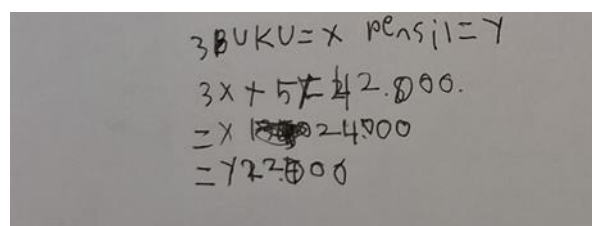 3BUKU=X Pensil=Y
3X+5Y=42.000.
=X 24000
=Y